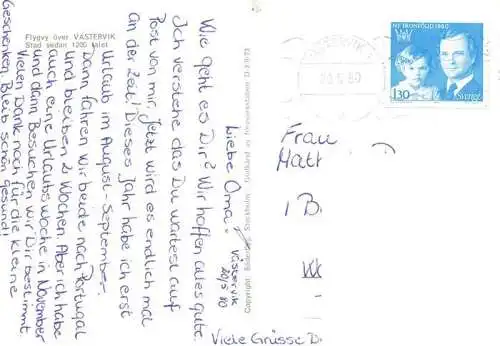 Flygvy över VÄSTERVIK
Stad sedan 1200 talet
Västervik
20/5 80
Liebe Oma!
Wie geht es Dir? Wir hoffen alles gute.
Ich verstehe das Du wartest auf
Post von mir. Jetzt wird es endlich mal
an der Zeit! Dieses Jahr habe ich erst
Urlaub im August-September.
Dann fahren wir beide nach Portugal
und bleiben 2 Wochen. Aber ich habe
auch eine Urlaubswoche in November
und dann Besuchen wir Dir bestimmt.
Vielen Dank noch für die kleine
Geschenken. Bleib schön gesund!
Viele Grüsse
Copyright: Stockholm. Godkänd av försvarsstaben
NY TRONFÖLJD 1980
130
Sverige
20.5.80
Frau
Matt
1 B